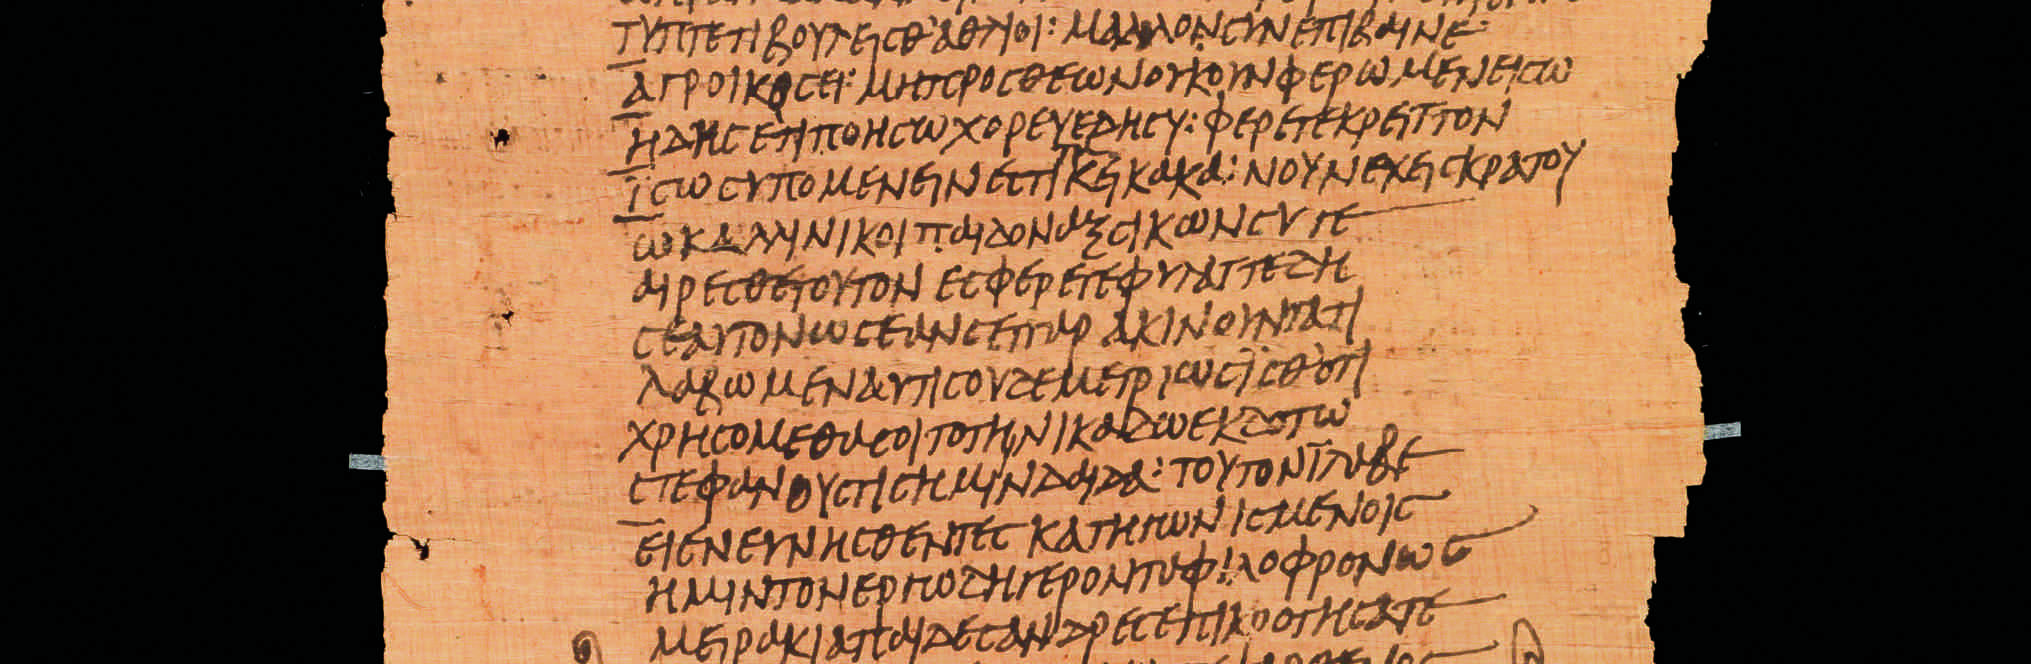 ΤΥΠΤΕΤΙΒΟΥΛΕΙϹΘ᾽ΑΘΛΙΟΙ: ΜΑΛΛΟΝϹΥΝΕΠΙΒΑΙΝΕ:
ΑΓΡΟΙΚΟϹΕΙ: ΜΗΠΡΟϹΘΕΩΝΟΥΚΟΥΝΦΕΡΩΜΕΝΕΙϹΩ
ΗΔΗϹΕΤΙΠΟΗϹΩΧΟΡΕΥΕΔΗϹΥ: ΦΕΡΕΤΕΚΡΕΙΤΤΟΝ
ΪϹΩϹΥΠΟΜΕΝΕΙΝΕϹΤΙΤΑΚΕΙΚΑΚΑ: ΝΟΥΝΕΧΕΙϹΚΡΑΤΟΥ
ΩΚΑΛΛΙΝΙΚΟΙΠΑΙΔΟΝΑΞϹΙΚΩΝϹΥΓΕ
ΑΙΡΕϹΘΕΤΟΥΤΟΝΕϹΦΕΡΕΤΕΦΥΛΑΤΤΕΔΗ
ϹΕΑΥΤΟΝΩϹΕΑΝϹΕΤΙΠΑΡΑΚΙΝΟΥΝΤΑΤΙ
ΛΑΒΩΜΕΝΑΥΤΙϹΟΥΔΕΜΕΤΡΙΩϹΪϹΘ᾽ΟΤΙ
ΧΡΗϹΟΜΕΘΑϹΟΙΤΟΤΗΝΙΚΑΔΩΕΚΔΟΤΩ
ϹΤΕΦΑΝΟΥϹΤΙϹΗΜΙΝΔΑΙΔΑ: ΤΟΥΤΟΝΪΛΑΒΕ
ΕΙΕΝϹΥΝΗϹΘΕΝΤΕϹΚΑΤΗΓΩΝΙϹΜΕΝΟΙϹ
ΗΜΙΝΤΟΝΕΡΓΩΔΗΓΕΡΟΝΤΑΦΙΛΟΦΡΟΝΩϹ
ΜΕΙΡΑΚΙΑΠΑΙΔΕϹΑΝΔΡΕϹΕΠΙΚΡΟΤΗϹΑΤΕ